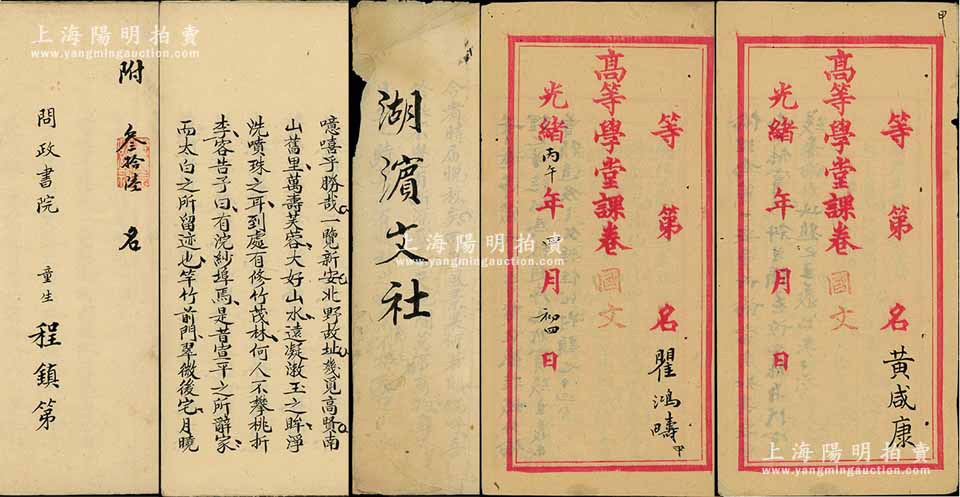 甲
高等學堂課卷 國文
等 第 名 黃咸康
光緒 年 月 日
高等學堂課卷 國文
等 第 名 瞿鴻疇 甲
光緒丙午年四月初四日
湖濱文社
噫嘻乎勝哉一覽新安北野故址幾覓高賢南
山舊里萬壽芙蓉大好山水遠凝漵玉之眸淨
洗噴珠之耳到處有修竹茂林何人不攀桃折
李客告予曰有浣紗埠焉是昔宣平之所辭家
而太白之所留迹也竿竹前門翠微後宅月曉
附 叁拾陸 名
問政書院 童生 程鎮第
上海陽明拍賣
www.yangmingauction.com
上海陽明拍賣
www.yangmingauction.com
上海陽明拍賣
www.yangmingauction.com
上海陽明拍賣
www.yangmingauction.com
上海陽明拍賣
www.yangmingauction.com